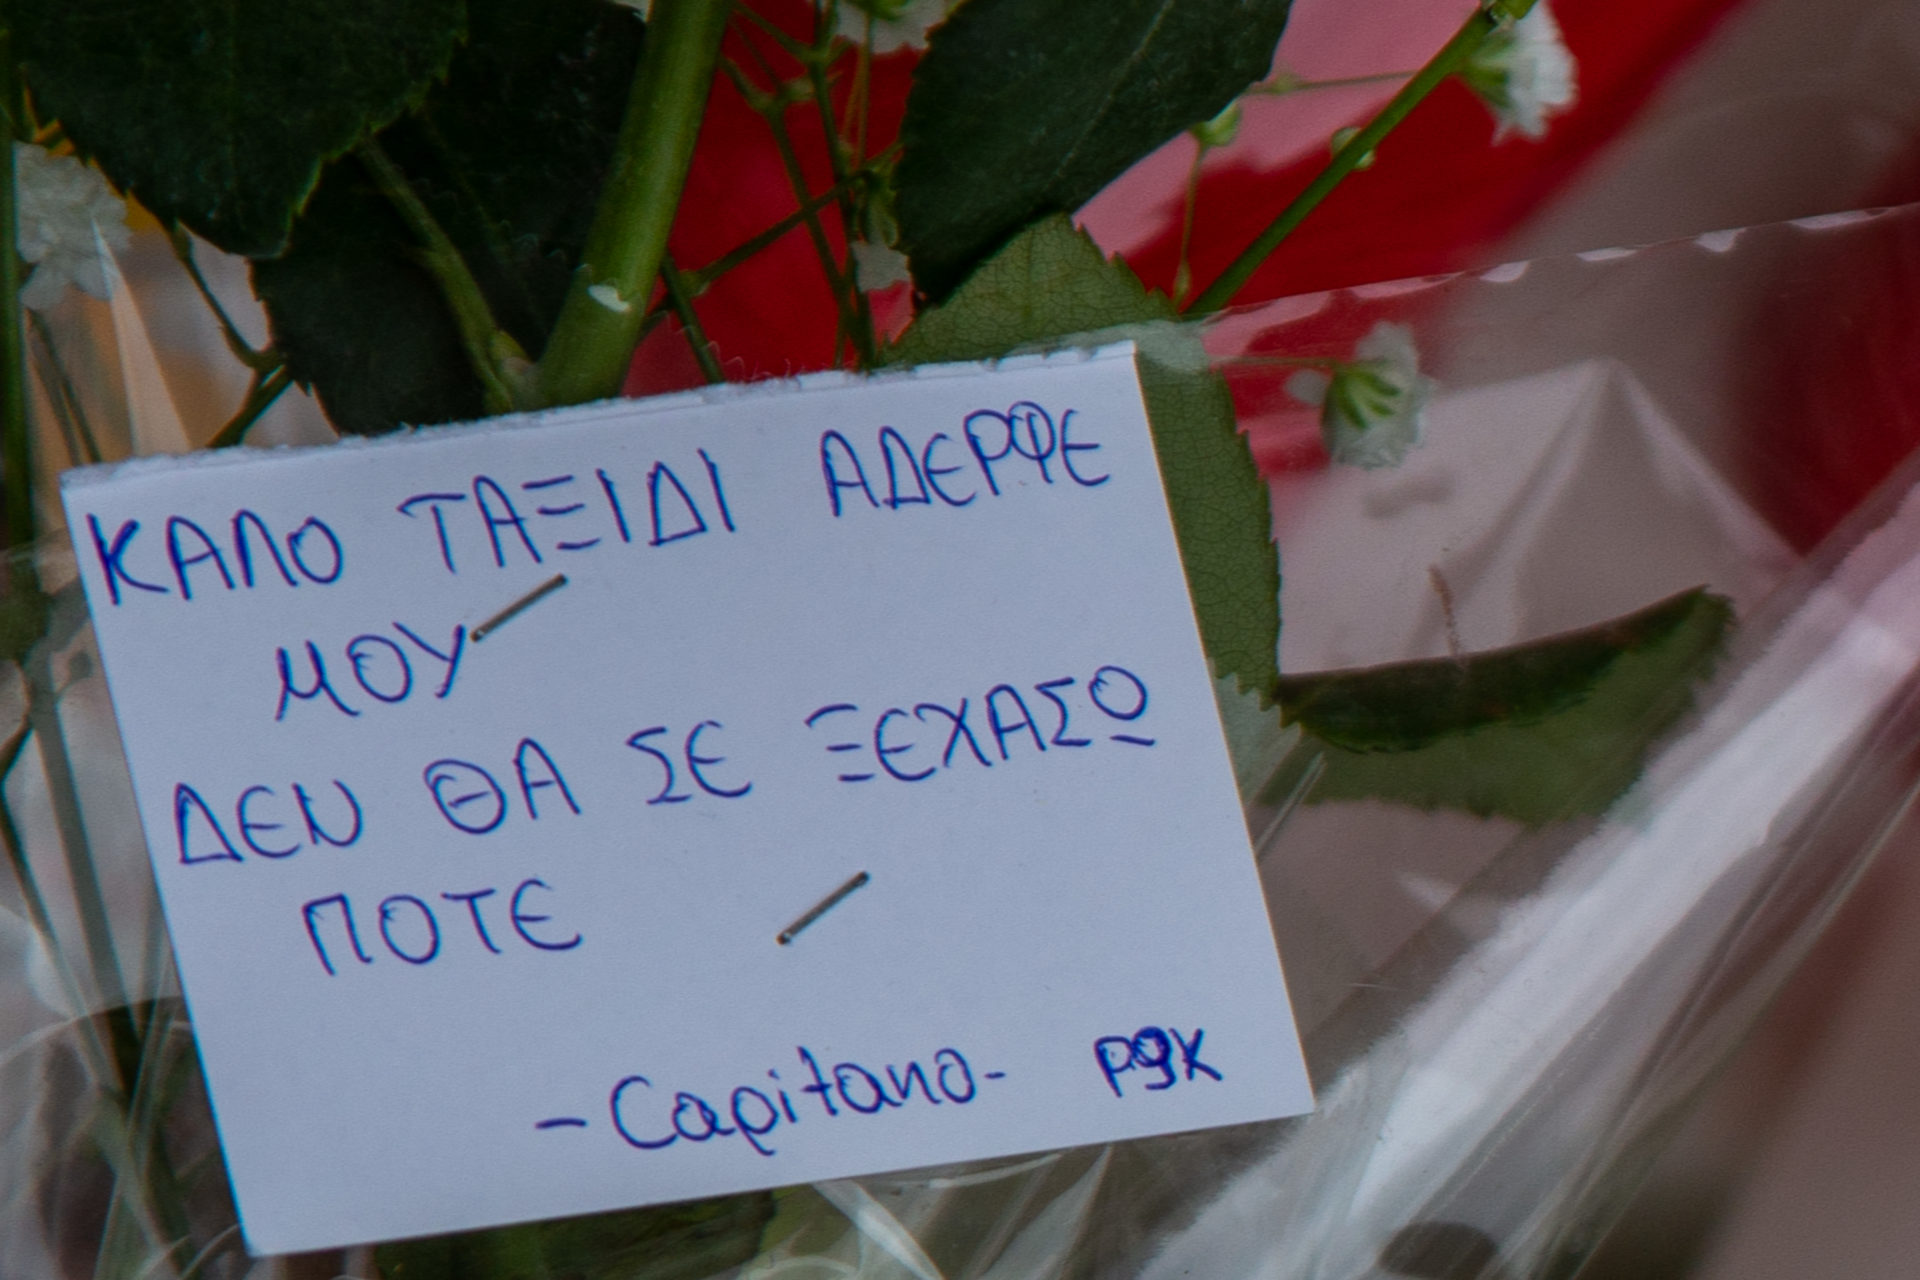 ΚΑΛΟ ΤΑΞΙΔΙ ΑΔΕΡΦΕ
ΜΟΥ
ΔΕΝ ΘΑ ΣΕ ΞΕΧΑΣΩ
ΠΟΤΕ
-Capitano-